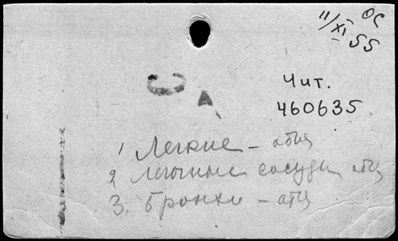 ОС
11/XI 55
С
А
Чит.
460635
1 Легкие - общ
2 Легочные сосуды общ
3. Бронхи - общ